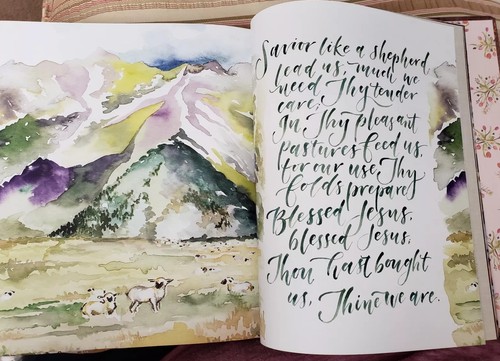 Savior like a shepherd
lead us, much we
need Thy tender
care;
In Thy pleasant
pastures feed us,
for our use Thy
folds prepare;
Blessed Jesus,
blessed Jesus,
Thou hast bought
us, Thine we are.